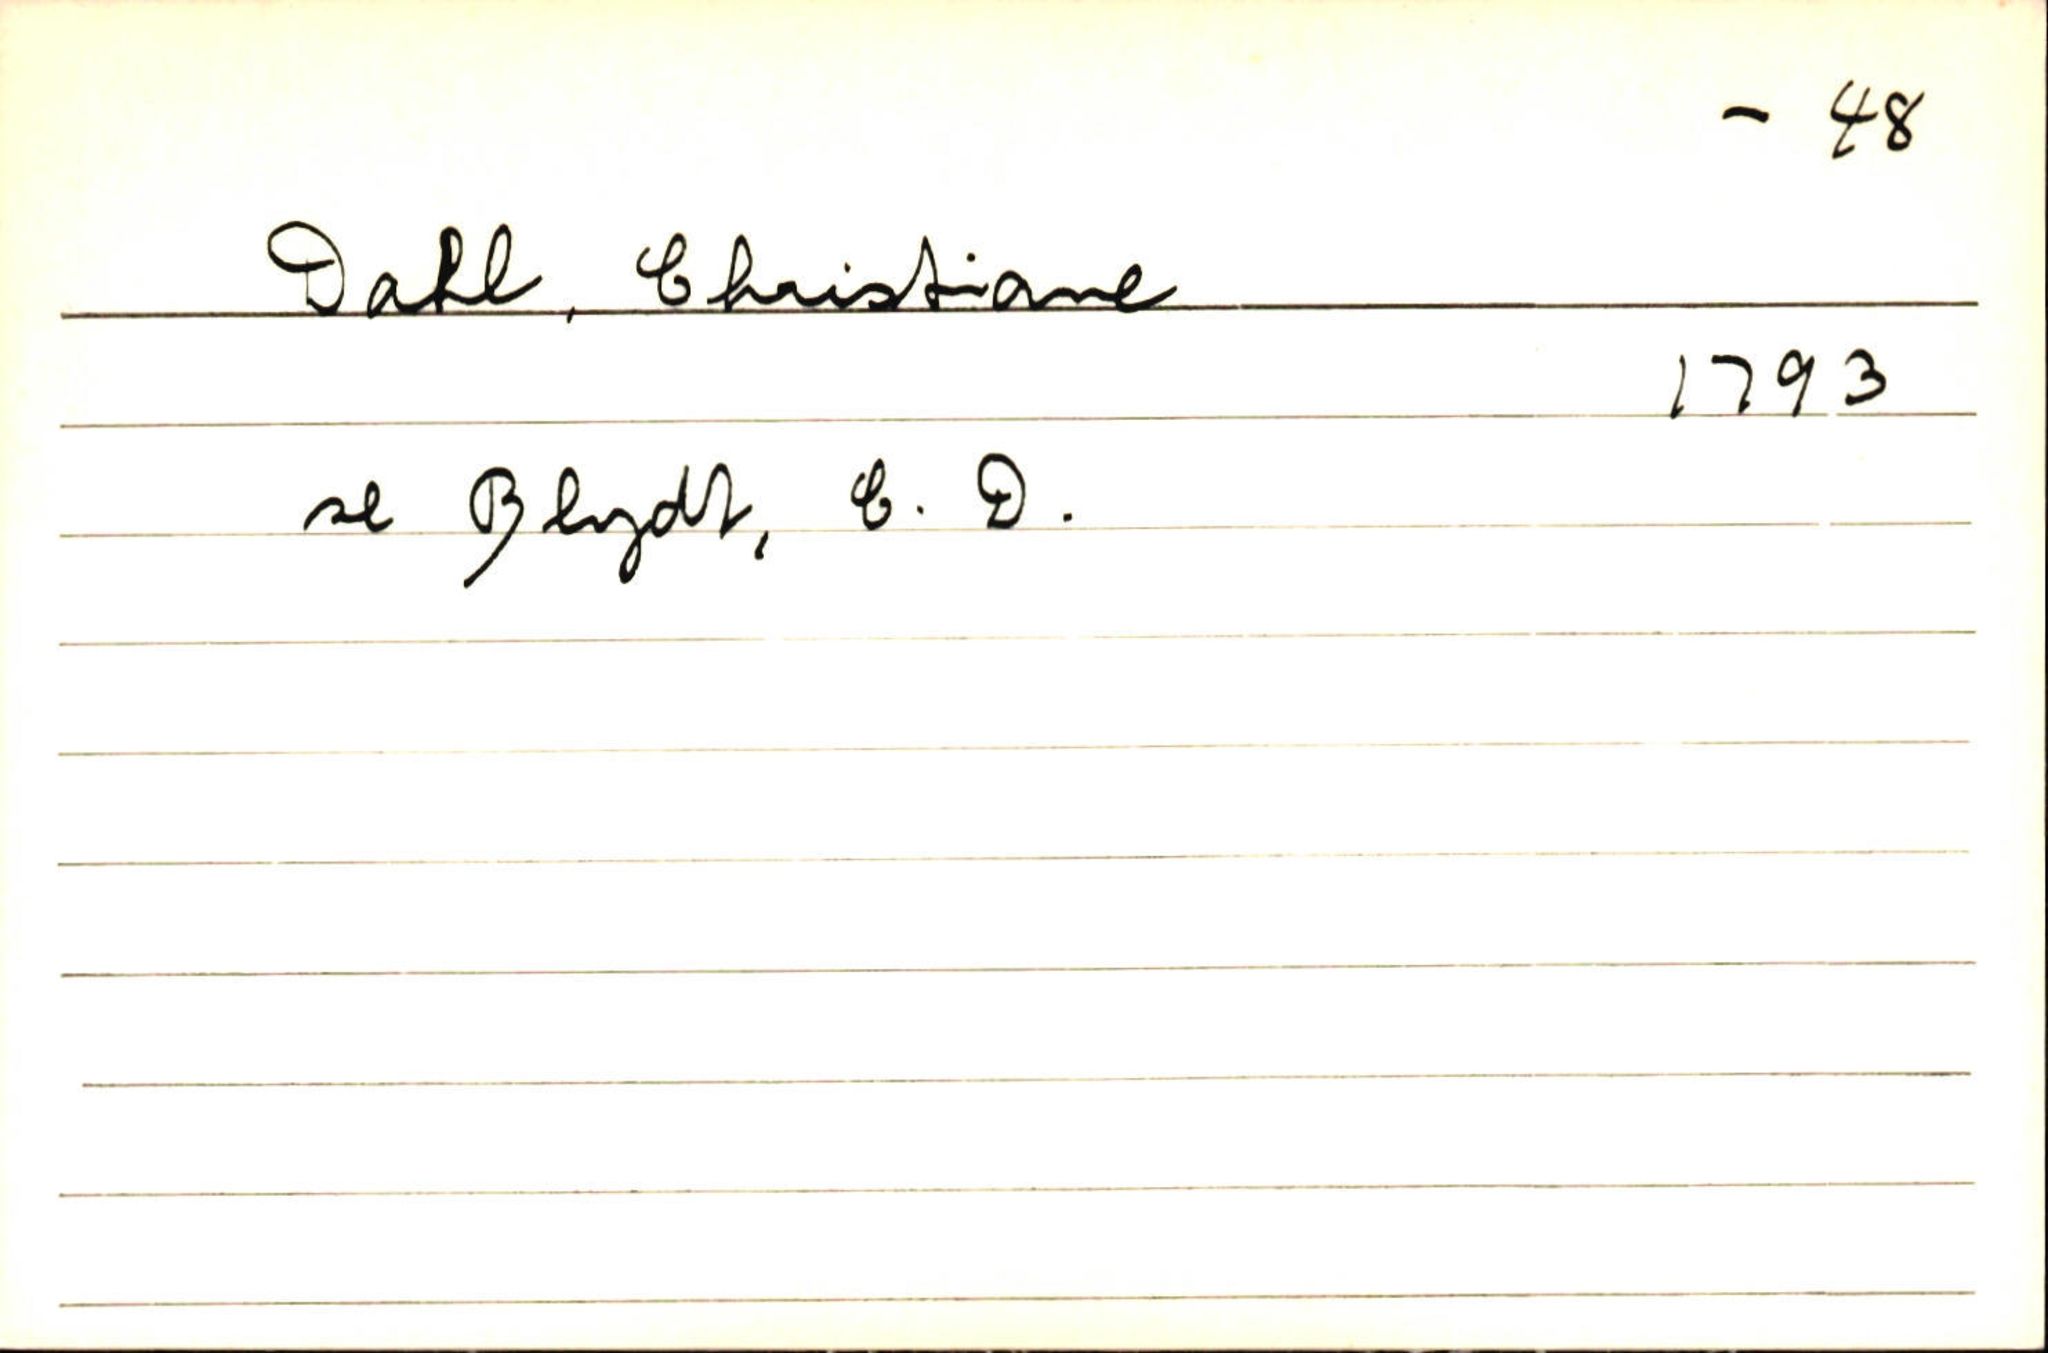 - 48
Dahl, Christiane
1793
se Blydt, C. D.